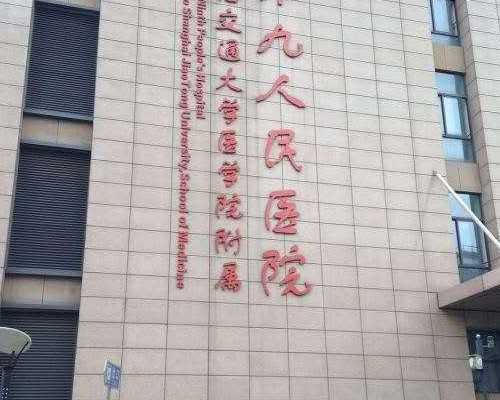 九人民医院
交通大学医学院附属
Ninth People's Hospital
Shanghai JiaoTong University, School of Medicine